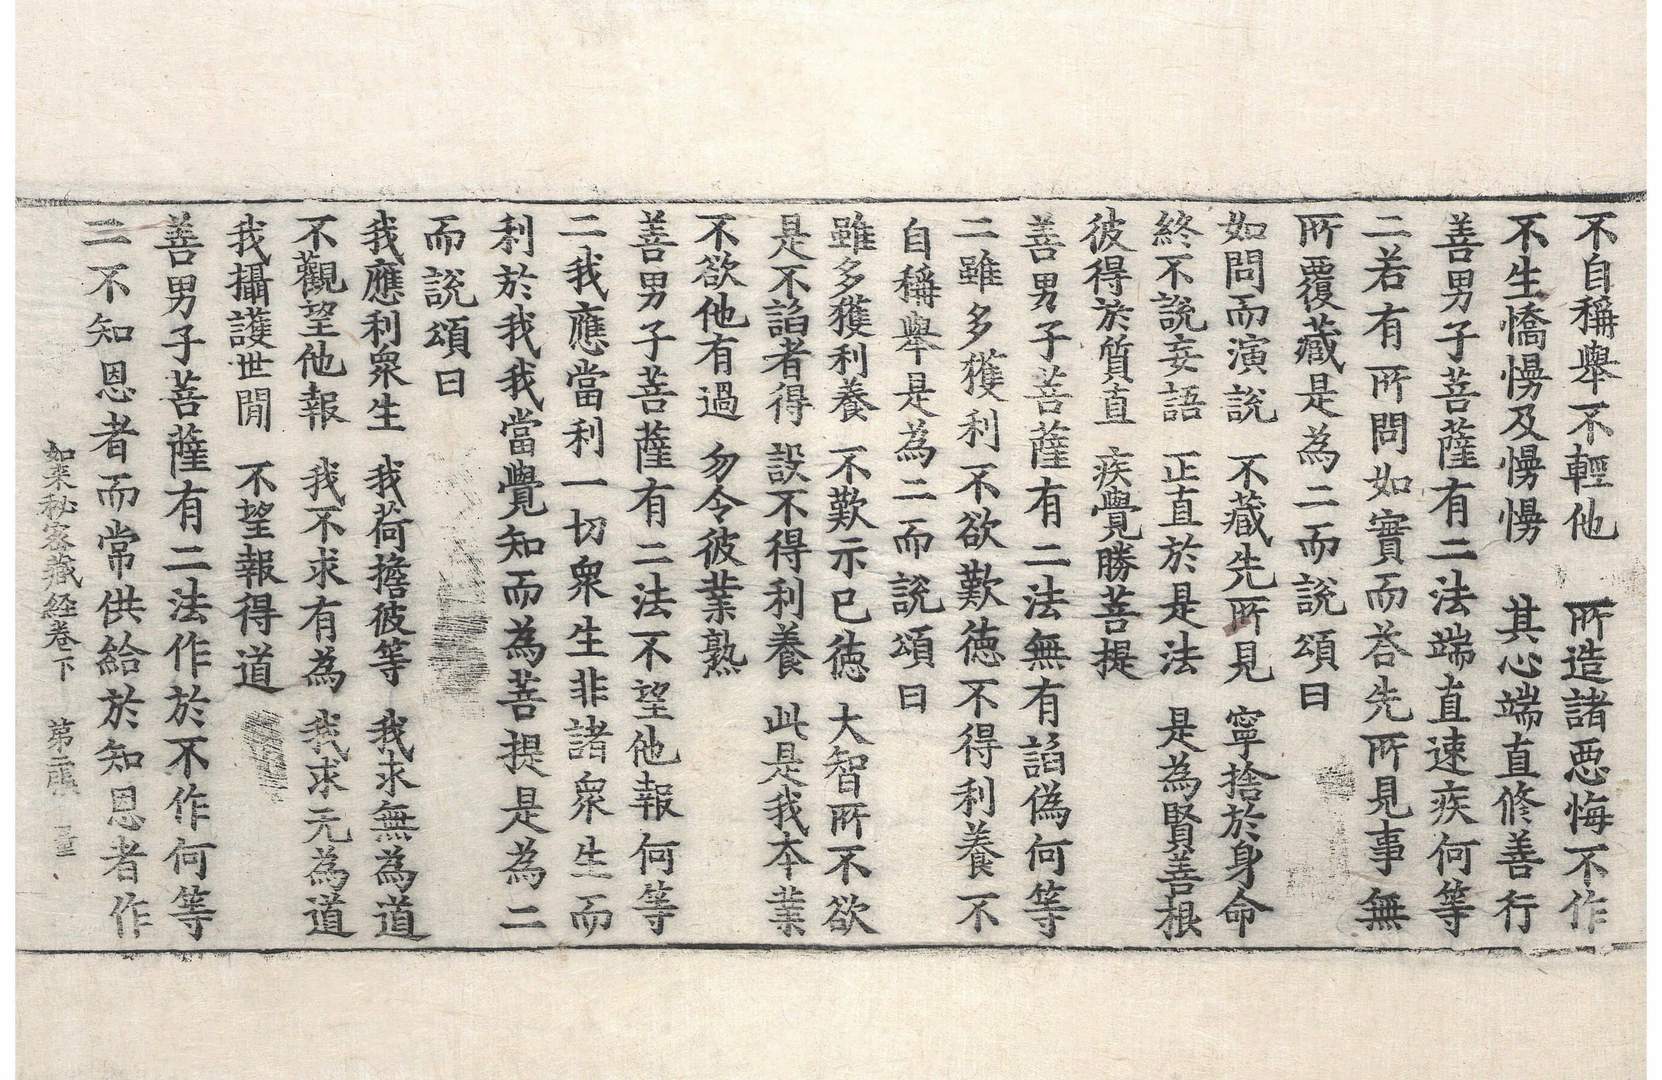 不自稱舉不輕他　所造諸惡悔不作
不生憍慢及慢慢　其心端直修善行
善男子菩薩有二法端直速疾何等
二若有所問如實而荅先所見事無
所覆藏是為二而說頌曰
如問而演說　不藏先所見　寧捨於身命
終不說妄語　正直於是法　是為賢善根
彼得於質直　疾覺勝菩提
善男子菩薩有二法無有諂偽何等
二雖多獲利不欲歎德不得利養不
自稱舉是為二而說頌曰
雖多獲利養　不歎示己德　大智所不欲
是不諂者得　設不得利養　此是我本業
不欲他有過　勿令彼業熟
善男子菩薩有二法不望他報何等
二我應當利一切眾生非諸眾生而
利於我我當覺知而為菩提是為二
而說頌曰
我應利眾生　我荷擔彼等　我求無為道
不觀望他報　我不求有為　我求无為道
我攝護世間　不望報得道
善男子菩薩有二法作於不作何等
二不知恩者而常供給於知恩者作
如来秘密藏経卷下　第二張